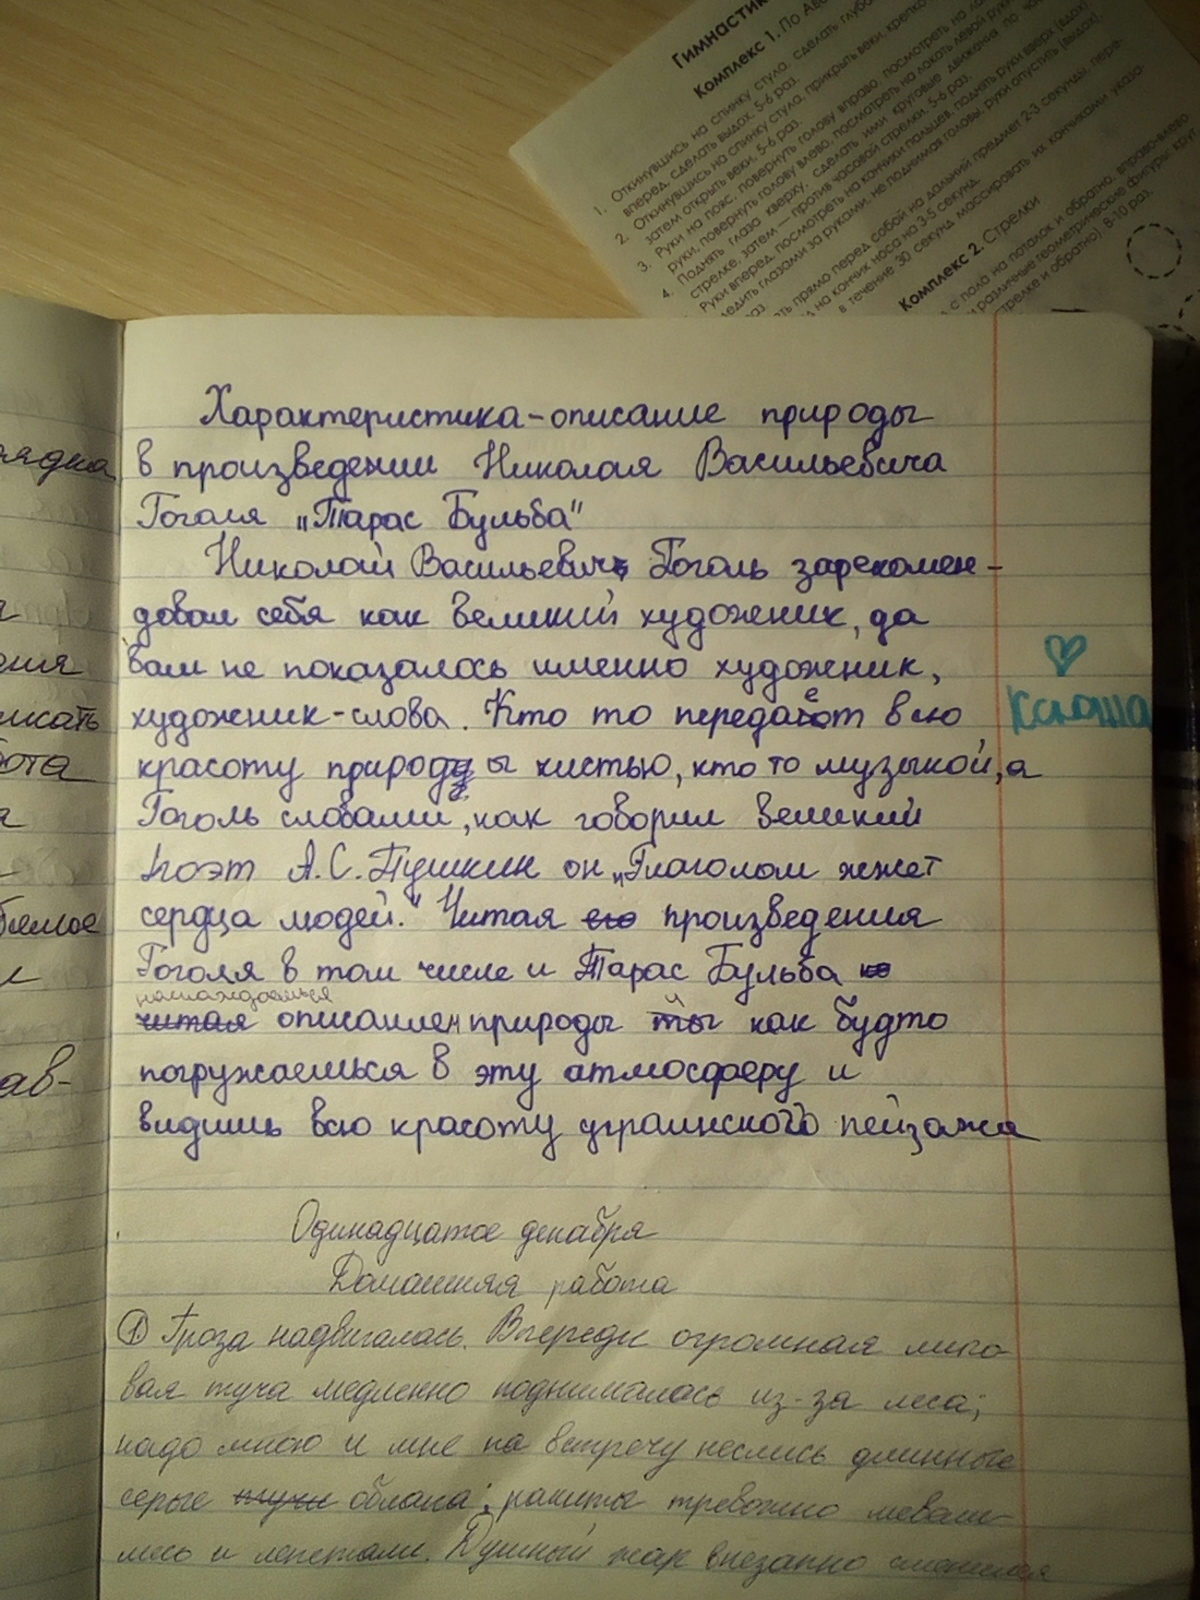 Гимнастик
Комплекс 1. По Аве
1. Откинувшись на спинку стула, сделать глубо
вперед, сделать выдох. 5-6 раз.
2. Откинувшись на спинку стула, прикрыть веки, крепко
затем открыть веки. 5-6 раз.
3. Руки на пояс, повернуть голову вправо, посмотреть на ло
руки, повернуть голову влево, посмотреть на локоть левой руки
4. Поднять глаза кверху, сделать ими круговые движения по ча
стрелке, затем — против часовой стрелки. 5-6 раз.
Руки вперед, посмотреть на кончики пальцев, поднять руки вверх (вдох)
ледить глазами за руками, не поднимая головы, руки опустить (выдох).
раз
ть прямо перед собой на дальний предмет 2-3 секунды, пере-
на кончик носа на 3-5 секунд.
в течение 30 секунд массировать их кончиками указа-
Комплекс 2. Стрелки
с пола на потолок и обратно, вправо-влево
и различные геометрические фигуры: кру
стрелке и обратно). 8-10 раз.
Характеристика-описание природы
в произведении Николая Васильевича
Гоголя „Тарас Бульба"
Николай Васильевич Гоголь зарекомен-
довал себя как великий художеник, да
вам не показалось именно художеник,
художеник-слова. Кто то передаёт всю
красоту природы кистью, кто то музыкой, а
Гоголь словами, как говорил великий
поэт А.С.Пушкин он „Глаголом жжет
сердца людей." Читая его произведения
Гоголя в том числе и Тарас Бульба
наслаждаешься
читая описанием природы ты как будто
погружаешься в эту атмосферу и
видишь всю красоту украинского пейзажа
♡
Ксюша
Одинадцатое декабря
Домашняя работа
① Гроза надвигалась. Впереди огромная лило-
вая туча медленно поднималась из-за леса;
надо мною и мне на встречу неслись длинные
серые тучи облака; ракиты тревожно шевели-
лись и лепетали. Душный жар внезапно сменился
рядна
ения
исать
бота
бимое
ав-